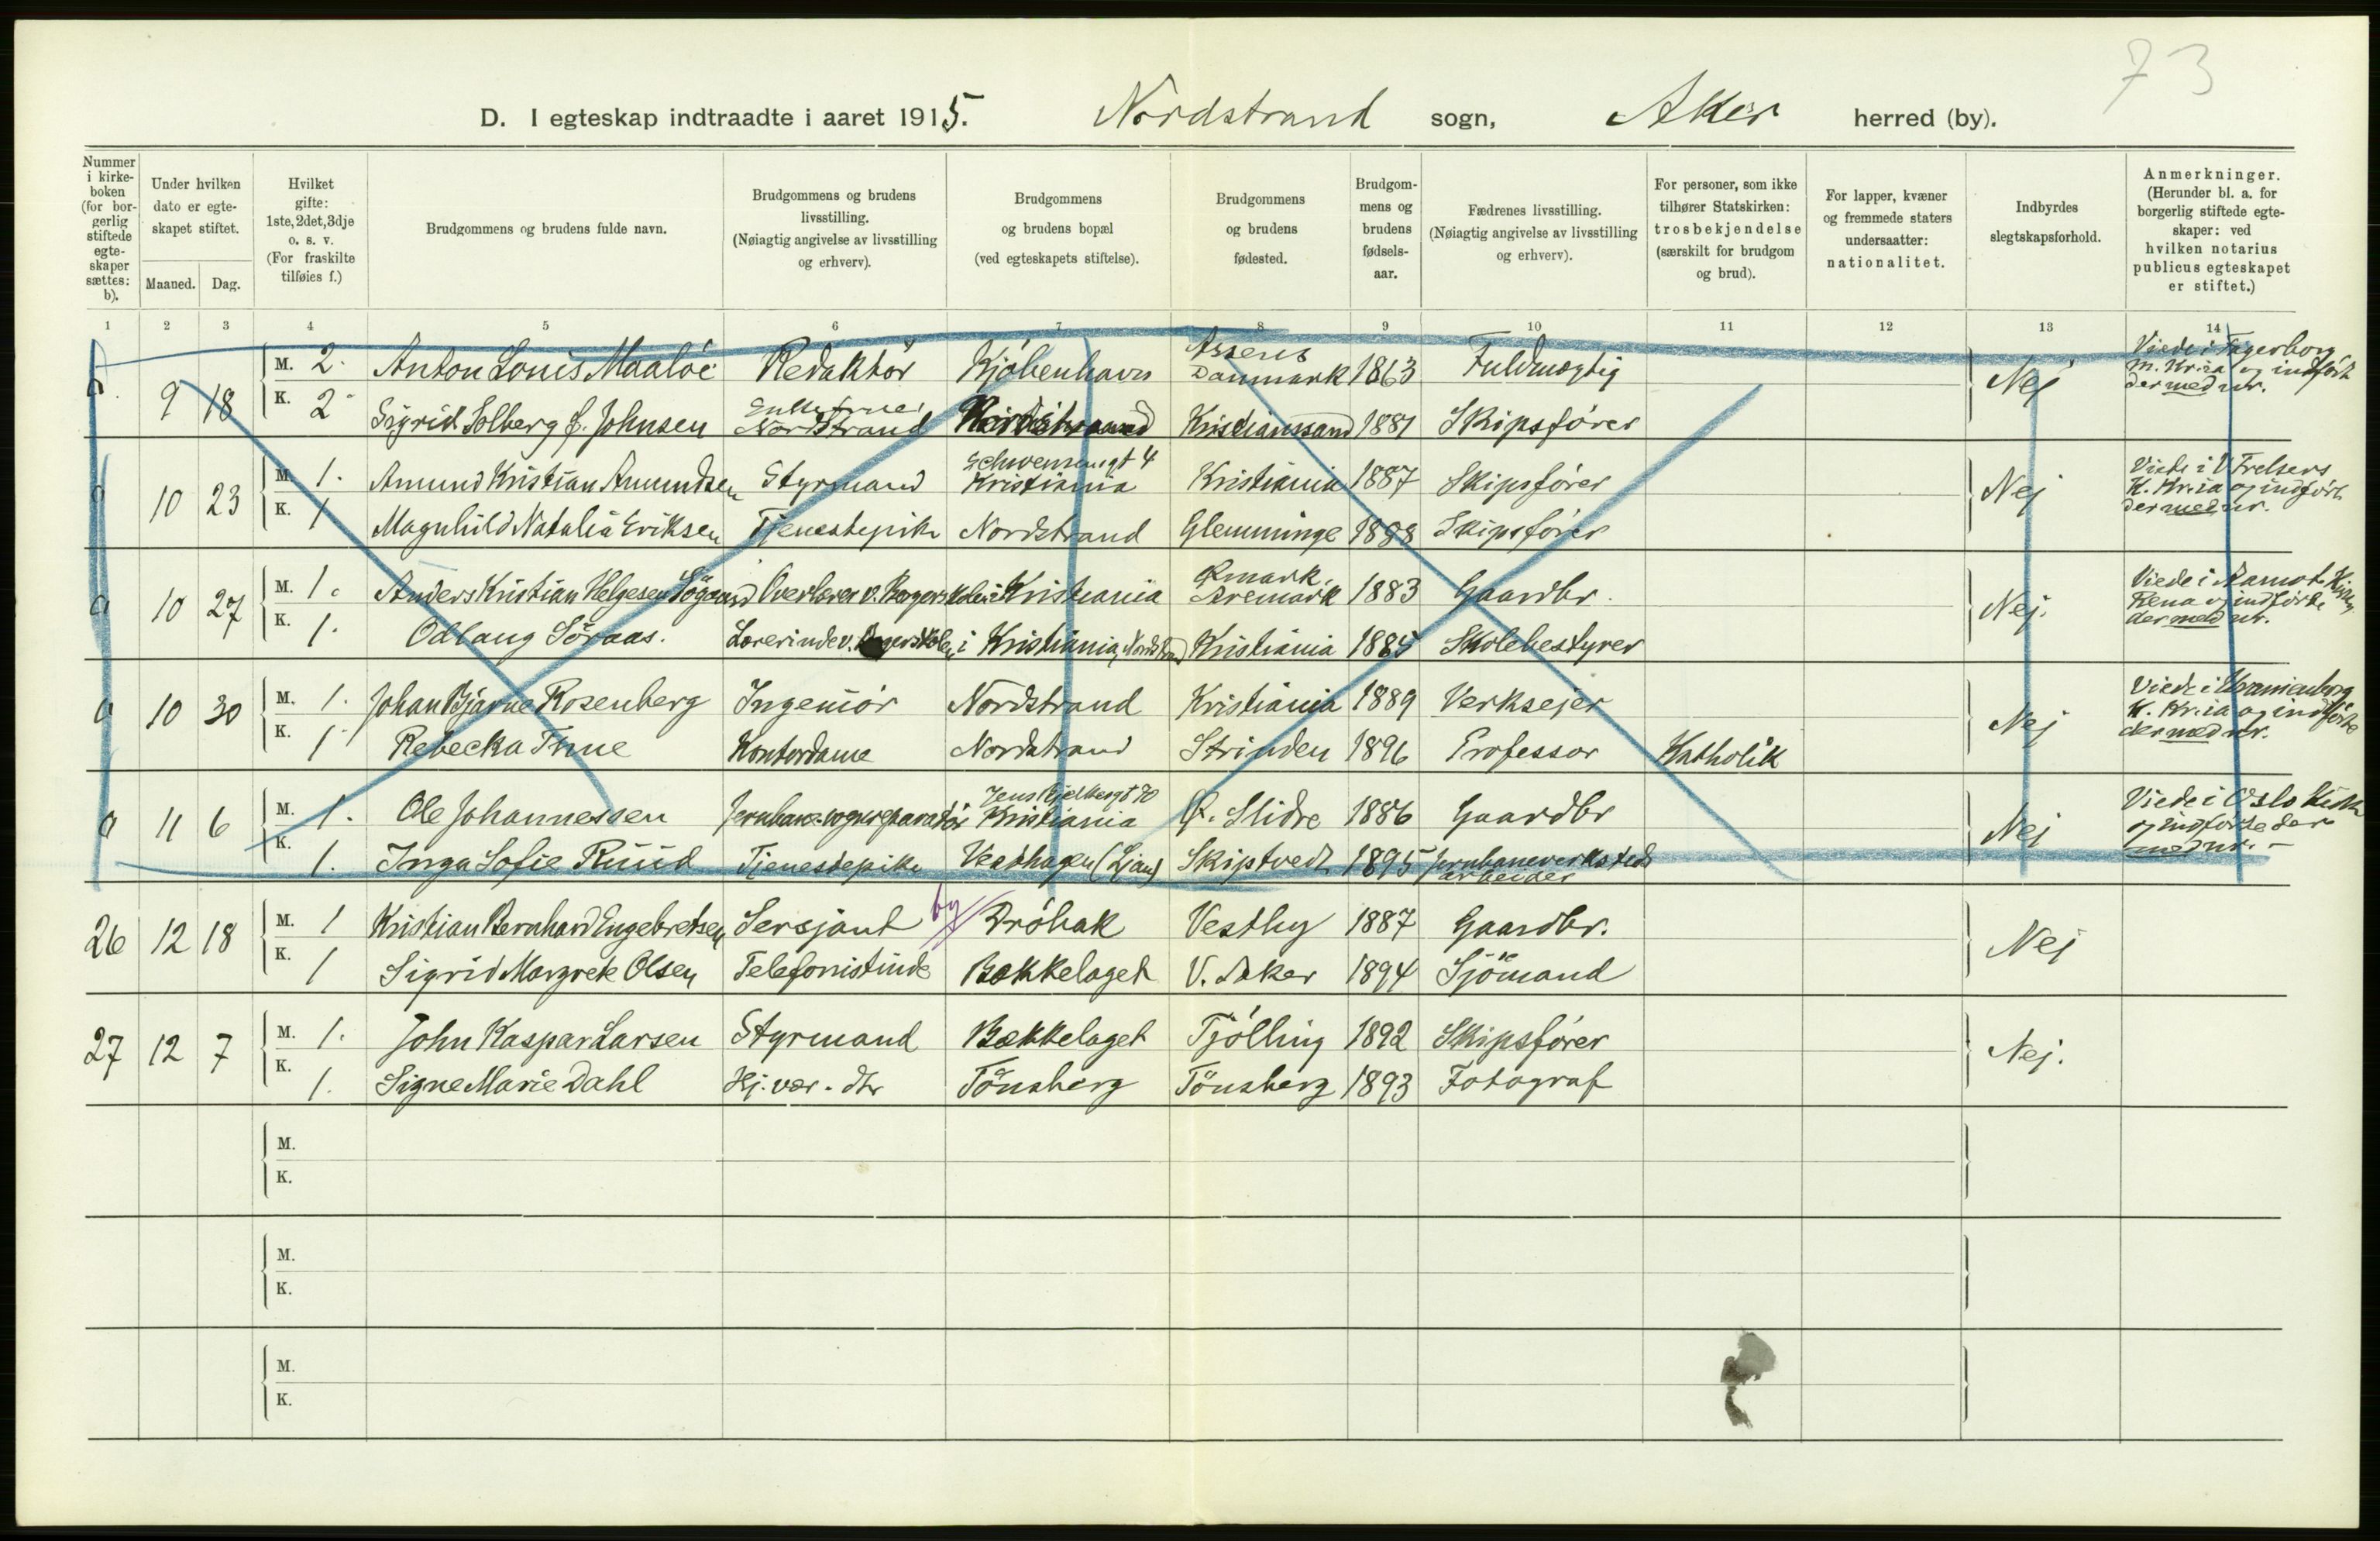 73
D. I egteskap indtraadte i aaret 1915. Nordstrand sogn, Aker herred (by).
Nummer i kirke-boken (for bor-gerlig stiftede egte-skaper sættes: b).
Under hvilken dato er egte-skapet stiftet.
Maaned. Dag.
Hvilket gifte: 1ste, 2det, 3dje o. s. v. (For fraskilte tilføies f.)
Brudgommens og brudens fulde navn.
Brudgommens og brudens livsstilling. (Nøiagtig angivelse av livsstilling og erhverv).
Brudgommens og brudens bopæl (ved egteskapets stiftelse).
Brudgommens og brudens fødested.
Brudgom-mens og brudens fødsels-aar.
Fædrenes livsstilling. (Nøiagtig angivelse av livsstilling og erhverv).
For personer, som ikke tilhører Statskirken: trosbekjendelse (særskilt for brudgom og brud).
For lapper, kvæner og fremmede staters undersaatter: nationalitet.
Indbyrdes slegtskapsforhold.
Anmerkninger. (Herunder bl. a. for borgerlig stiftede egte-skaper: ved hvilken notarius publicus egteskapet er stiftet.)
1 2 3 4 5 6 7 8 9 10 11 12 13 14
9 18 M. 2. Anton Louis Maalöe Redaktör Kjöbenhavn Assens Danmark 1863 Fuldmægtig Nej Viede i Fagerborg m. Kr.ia og indfört der med nr.
K. 2 Sigrid Solberg f. Johnsen Enkefrue Nordstrand Kristianssand 1881 Skipsförer
0 10 23 M. 1. Amund Kristian Amundsen Styrmand Schwensensgt 4 Kristiania Kristiania 1887 Skipsförer Nej Viede i V Frelsers K. Kr.ia og indfört der med nr.
K. 1 Magnhild Natalia Eriksen Tjenestepike Nordstrand Glemminge 1888 Skipsförer
0 10 27 M. 1. Anders Kristian Helgesen Overlærer v. Borgerskolen i Kristiania Aremark 1883 Gaardbr. Nej. Viede i Aamot Kirke, Rena og indförte der med nr.
K. 1. Odlaug Söraas. Lærerinde v. i Kristiania, Nordstrand Kristiania 1884 Skolebestyrer
0 10 30 M. 1. Johan Bjarne Rosenberg Ingeniör Nordstrand Kristiania 1889 Verksejer Nej Viede i Uranienborg K. Kr.ia og indförte der med nr.
K. 1 Rebecka Thue Kontordame Nordstrand Strinden 1896 Professor Katholik
0 11 6 M. 1. Ole Johannessen Jernbanevognreparatör Jens Bjelkesgt 70 Kristiania Ö. Slidre 1886 Gaardbr Nej Viede i Oslo Kirke og indförte der med nr. –
K. 1. Inga Sofie Ruud Tjenestepike Vesthagen (Ljan) Skiptvedt 1895 Jernbaneverksteds arbeider
26 12 18 M. 1 Kristian Bernhard Engebretsen Sersjant by Dröbak Vestby 1887 Gaardbr. Nej
K. 1 Sigrid Margrete Olsen Telefonistinde Bækkelaget V. Aker 1894 Sjömand
27 12 7 M. 1. John Kaspar Larsen Styrmand Bækkelaget Tjölling 1892 Skipsförer Nej.
K. 1. Signe Marie Dahl Hj. vær. dtr Tönsberg Tönsberg 1893 Fotograf
M.
K.
M.
K.
M.
K.